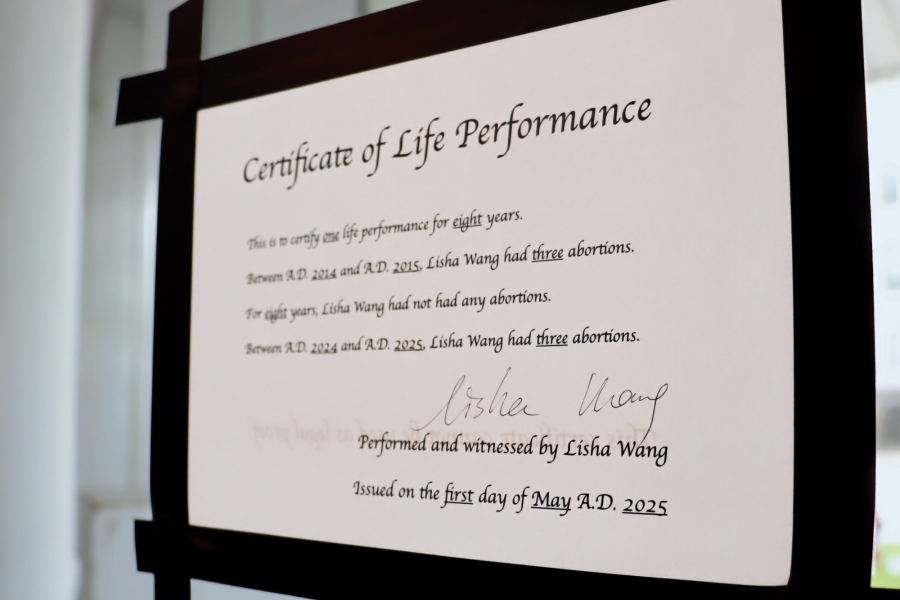 Certificate of Life Performance
This is to certify one life performance for eight years.
Between A.D. 2014 and A.D. 2015, Lisha Wang had three abortions.
For eight years, Lisha Wang had not had any abortions.
Between A.D. 2024 and A.D. 2025, Lisha Wang had three abortions.
Lisha Wang
Performed and witnessed by Lisha Wang
Issued on the first day of May A.D. 2025